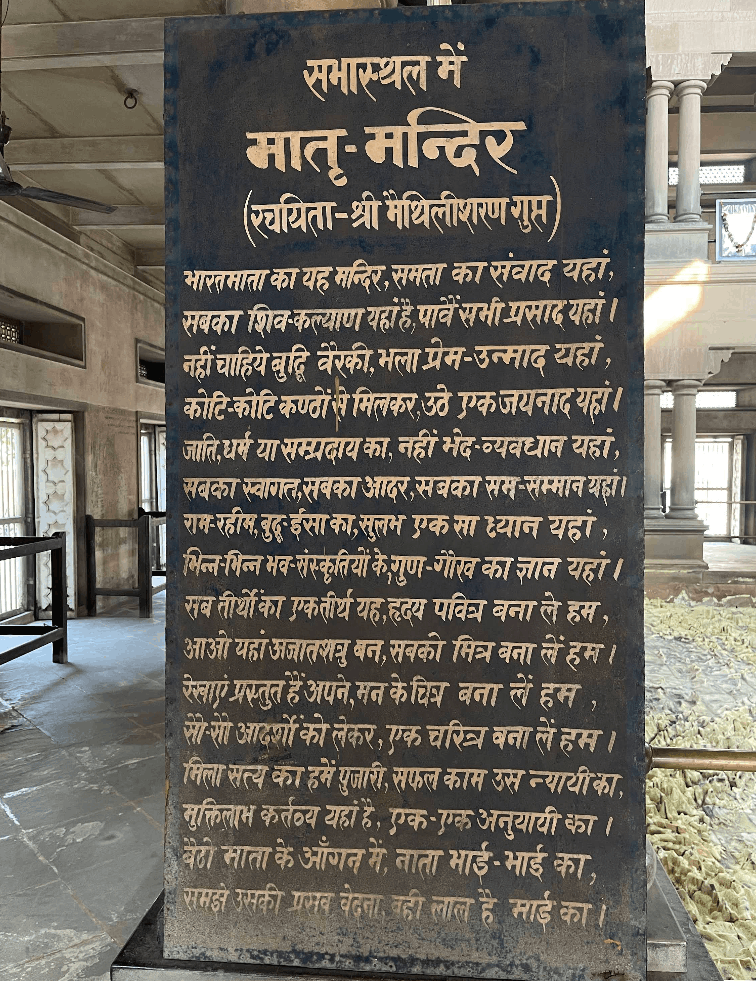 सभास्थल में
मातृ-मन्दिर
(रचयिता-श्री मैथिलीशरण गुप्त)
भारतमाता का यह मन्दिर, समता का संवाद यहां,
सबका शिव-कल्याण यहां है, पावैं सभी प्रसाद यहां।
नहीं चाहिये बुद्धि वैरकी, भला प्रेम-उन्माद यहां,
कोटि-कोटि कण्ठों से मिलकर, उठे एक जयनाद यहां।
जाति, धर्म या सम्प्रदाय का, नहीं भेद-व्यवधान यहां,
सबका स्वागत, सबका आदर, सबका सम-सम्मान यहां।
राम-रहीम, बुद्ध-ईसा का, सुलभ एक सा ध्यान यहां,
भिन्न-भिन्न भव-संस्कृतियों के, गुण-गौरव का ज्ञान यहां।
सब तीर्थों का एक तीर्थ यह, हृदय पवित्र बना लें हम,
आओ यहां अजातशत्रु बन, सबको मित्र बना लें हम।
रेखाएं प्रस्तुत हैं अपने, मन के चित्र बना लें हम,
सौ-सौ आदर्शों को लेकर, एक चरित्र बना लें हम।
मिला सत्य का हमें पुजारी, सफल काम उस न्यायी का,
मुक्तिलाभ कर्तव्य यहां है, एक-एक अनुयायी का।
बैठो माता के आँगन में, नाता भाई-भाई का,
समझे उसकी प्रसव वेदना, वही लाल है माई का।